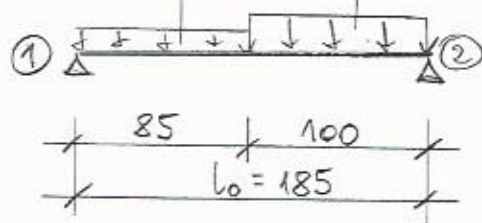 1 2
85 100
l₀ = 185